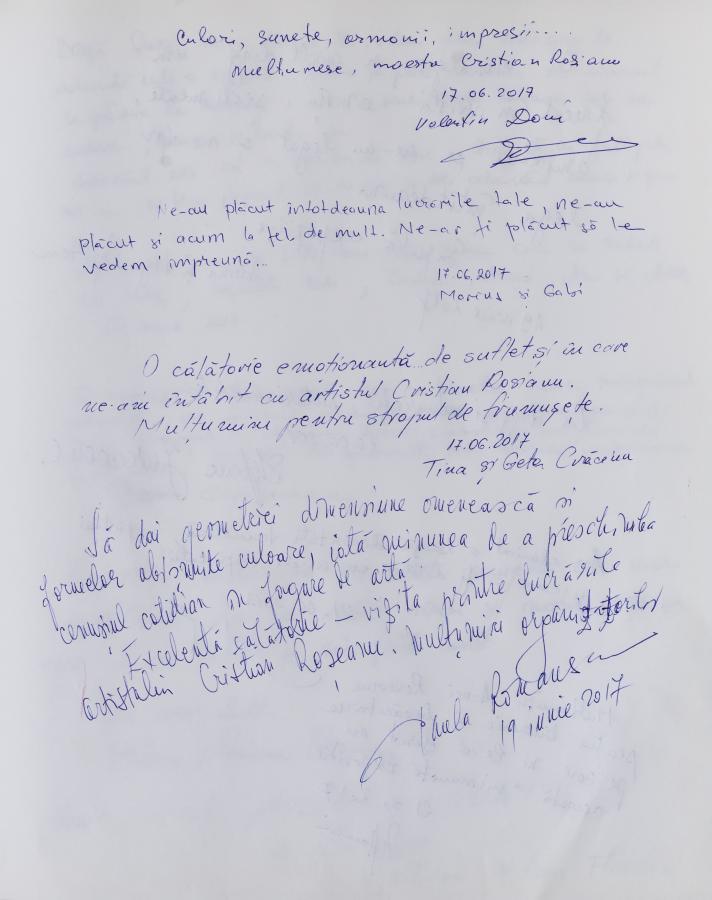 Culori, sunete, armonii, impresii....
Mulțumesc, maestre Cristian Roșianu
17.06.2017
Valentin
Ne-au plăcut întotdeauna lucrările tale, ne-au
plăcut și acum la fel de mult. Ne-ar fi plăcut să le
vedem împreună...
17.06.2017
Marius și Gabi
O călătorie emoționantă de suflet și în care
ne-am întâlnit cu artistul Cristian Roșianu.
Mulțumim pentru stropul de frumusețe.
17.06.2017
Tina și Geta
Să dai geometriei dimensiune omenească și
formelor obișnuite culoare, iată minunea de a preschimba
cenușiul cotidian în de artă
Excelentă călătorie – vizita printre lucrările
artistului Cristian Roseanu. Mulțumiri organizatorilor
Paula
19 iunie 2017